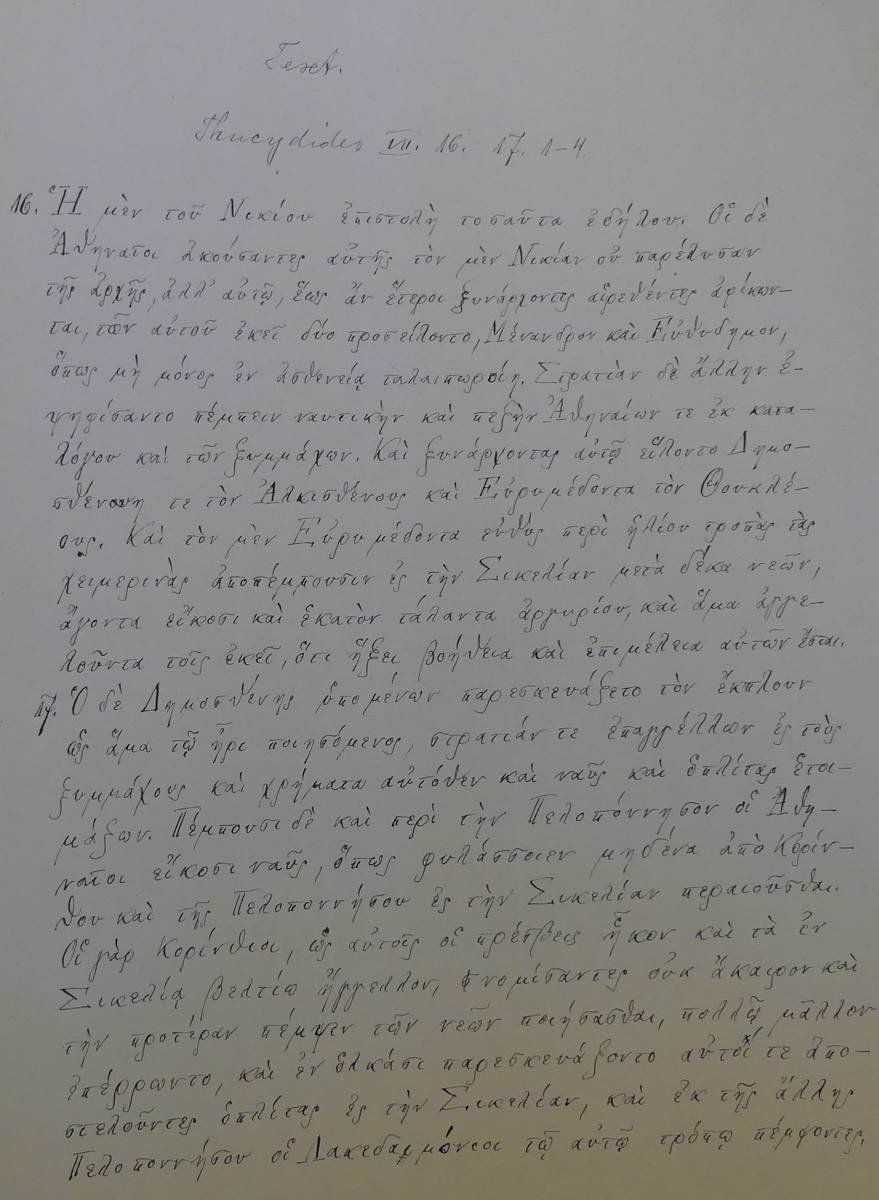 Text.
Thucydides VII. 16. 17. 1–4.
16. Ἡ μὲν τοῦ Νικίου ἐπιστολὴ τοσαῦτα ἐδήλου. Οἱ δὲ
Ἀθηναῖοι ἀκούσαντες αὐτῆς τὸν μὲν Νικίαν οὐ παρέλυσαν
τῆς ἀρχῆς, ἀλλ' αὐτῷ, ἕως ἂν ἕτεροι ξυνάρχοντες αἱρεθέντες ἀφίκων-
ται, τῶν αὐτοῦ ἐκεῖ δύο προσείλοντο, Μένανδρον καὶ Εὐθύδημον,
ὅπως μὴ μόνος ἐν ἀσθενείᾳ ταλαιπωροίη. Στρατιὰν δὲ ἄλλην ἐ-
ψηφίσαντο πέμπειν ναυτικὴν καὶ πεζὴν Ἀθηναίων τε ἐκ κατα-
λόγου καὶ τῶν ξυμμάχων. Καὶ ξυνάρχοντας αὐτῷ εἵλοντο Δημο-
σθένη τε τὸν Ἀλκισθένους καὶ Εὐρυμέδοντα τὸν Θουκλέ-
ους. Καὶ τὸν μὲν Εὐρυμέδοντα εὐθὺς περὶ ἡλίου τροπὰς τὰς
χειμερινὰς ἀποπέμπουσιν ἐς τὴν Σικελίαν μετὰ δέκα νεῶν,
ἄγοντα εἴκοσι καὶ ἑκατὸν τάλαντα ἀργυρίου, καὶ ἅμα ἀγγε-
λοῦντα τοῖς ἐκεῖ, ὅτι ἥξει βοήθεια καὶ ἐπιμέλεια αὐτῶν ἔσται.
17. Ὁ δὲ Δημοσθένης ὑπομένων παρεσκευάζετο τὸν ἔκπλουν
ὡς ἅμα τῷ ἦρι ποιησόμενος, στρατιάν τε ἐπαγγέλλων ἐς τοὺς
ξυμμάχους καὶ χρήματα αὐτόθεν καὶ ναῦς καὶ ὁπλίτας ἑτοι-
μάζων. Πέμπουσι δὲ καὶ περὶ τὴν Πελοπόννησον οἱ Ἀθη-
ναῖοι εἴκοσι ναῦς, ὅπως φυλάσσοιεν μηδένα ἀπὸ Κορίν-
θου καὶ τῆς Πελοποννήσου ἐς τὴν Σικελίαν περαιοῦσθαι.
Οἱ γὰρ Κορίνθιοι, ὡς αὐτοῖς οἱ πρέσβεις ἧκον καὶ τὰ ἐν
Σικελίᾳ βελτίω ἤγγελλον, νομίσαντες οὐκ ἄκαιρον καὶ
τὴν προτέραν πέμψιν τῶν νεῶν ποιήσασθαι, πολλῷ μᾶλλον
ἐπέρρωντο, καὶ ἐν ὁλκάσι παρεσκευάζοντο αὐτοί τε ἀπο-
στελοῦντες ὁπλίτας ἐς τὴν Σικελίαν, καὶ ἐκ τῆς ἄλλης
Πελοποννήσου οἱ Λακεδαιμόνιοι τῷ αὐτῷ τρόπῳ πέμψοντες.